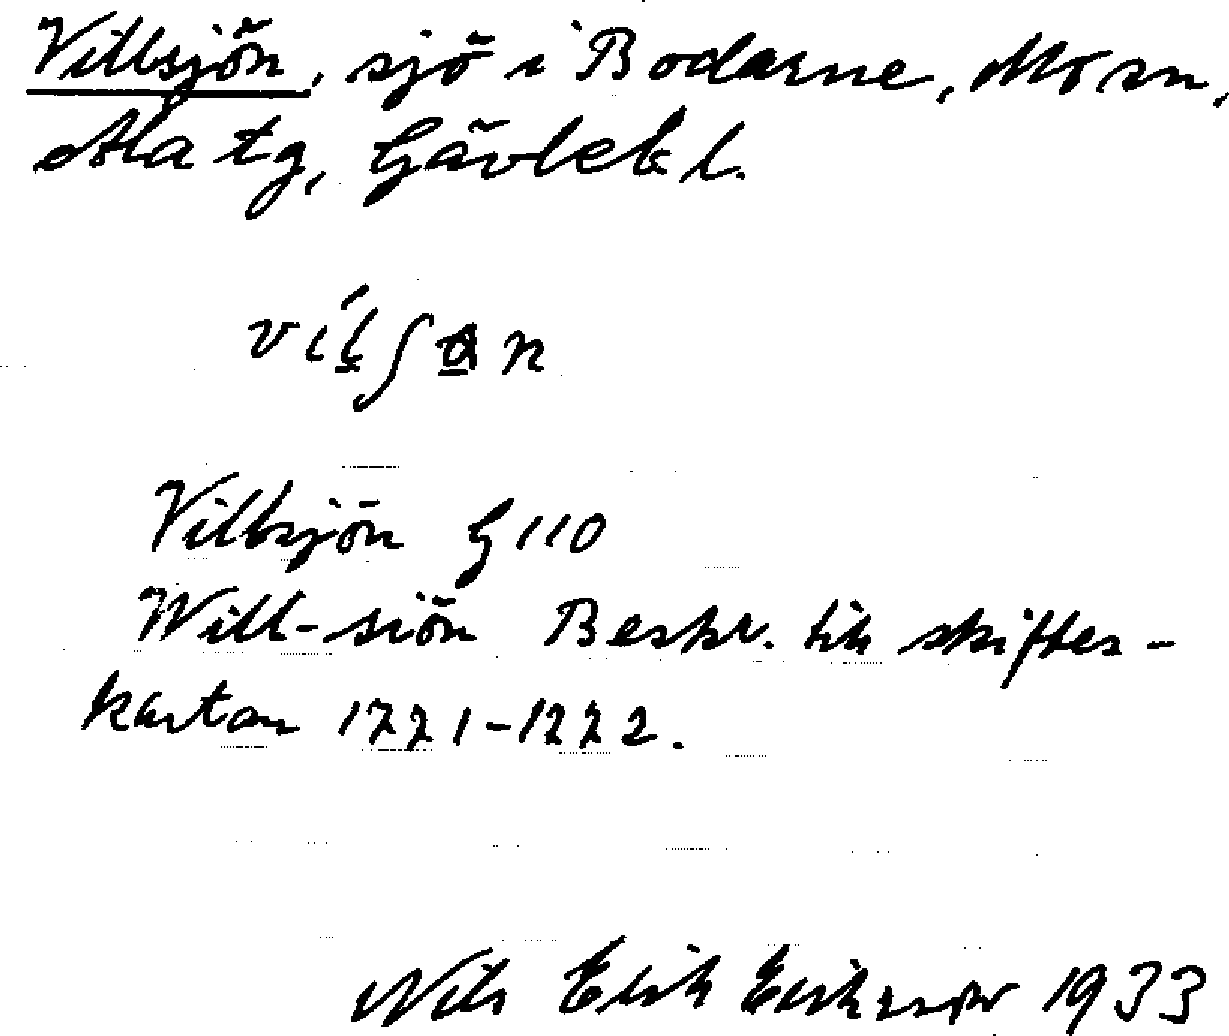 Villsjön, sjö i Bodarne, Mo sn,
Ala tg, Gävleb. l.
Villsjön G 110
Will-siön Beskr. till skiftes-
kartan 1771-1772.
Nils Erik Eriksson 1933